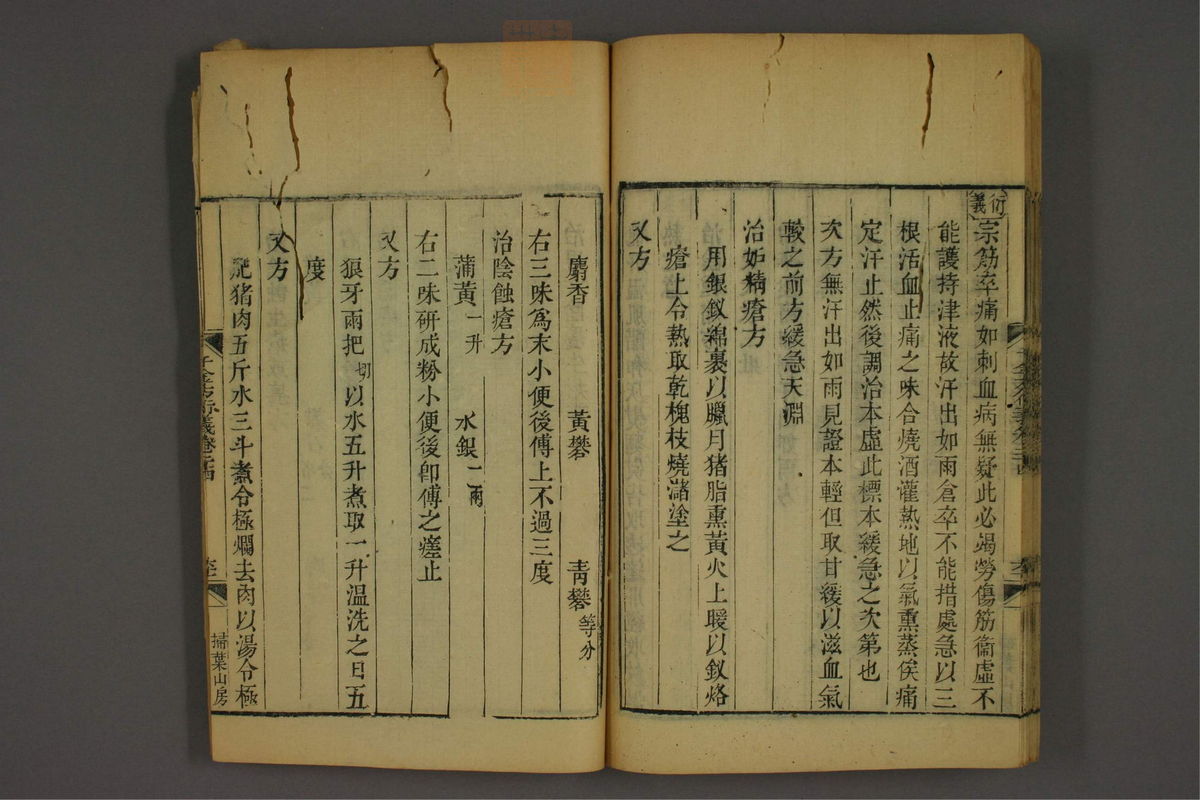 衍義
宗筋卒痛如刺血病無疑此必竭勞傷筋衞虛不
能護持津液故汗出如雨倉卒不能措處急以三
根活血止痛之味合燒酒灌熱地以氣熏蒸俟痛
定汗止然後調治本虛此標本緩急之次第也
次方無汗出如雨見證本輕但取甘緩以滋血氣
較之前方緩急天淵
治妬精瘡方
用銀釵綿裹以臘月猪脂熏黃火上暖以釵烙
瘡上令熱取乾槐枝燒瀦塗之
又方
麝香 黃礬 青礬等分
右三味爲末小便後傅上不過三度
治陰蝕瘡方
蒲黃一升 水銀一兩
右二味研成粉小便後卽傅之瘥止
又方
狼牙兩把切以水五升煮取一升溫洗之日五
度
又方
肥猪肉五斤水三斗煮令極爛去肉以湯令極
千金方衍義卷二十四
掃葉山房